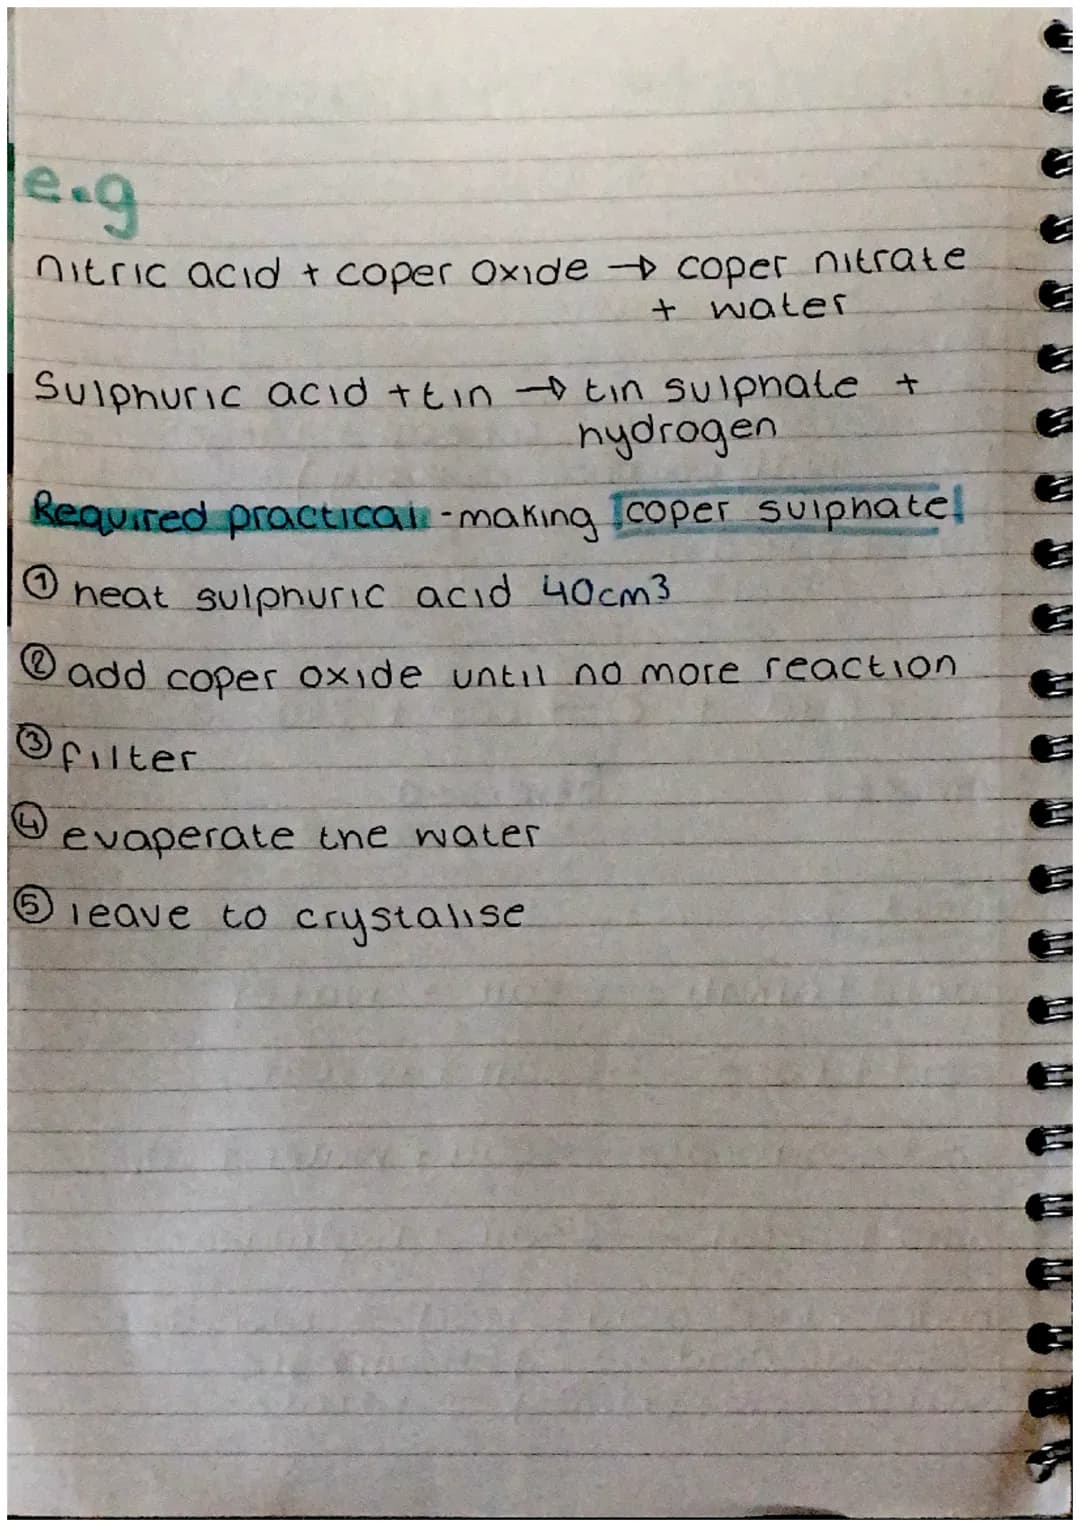 e.g
nitric acid + coper oxide → coper nitrate
+ water
Sulphuric acid + tin → tin sulphate +
hydrogen
Required practical - making coper sulphate
① heat sulphuric acid 40cm3
② add coper oxide until no more reaction
③ filter
④ evaperate the water
⑤ leave to crystalise